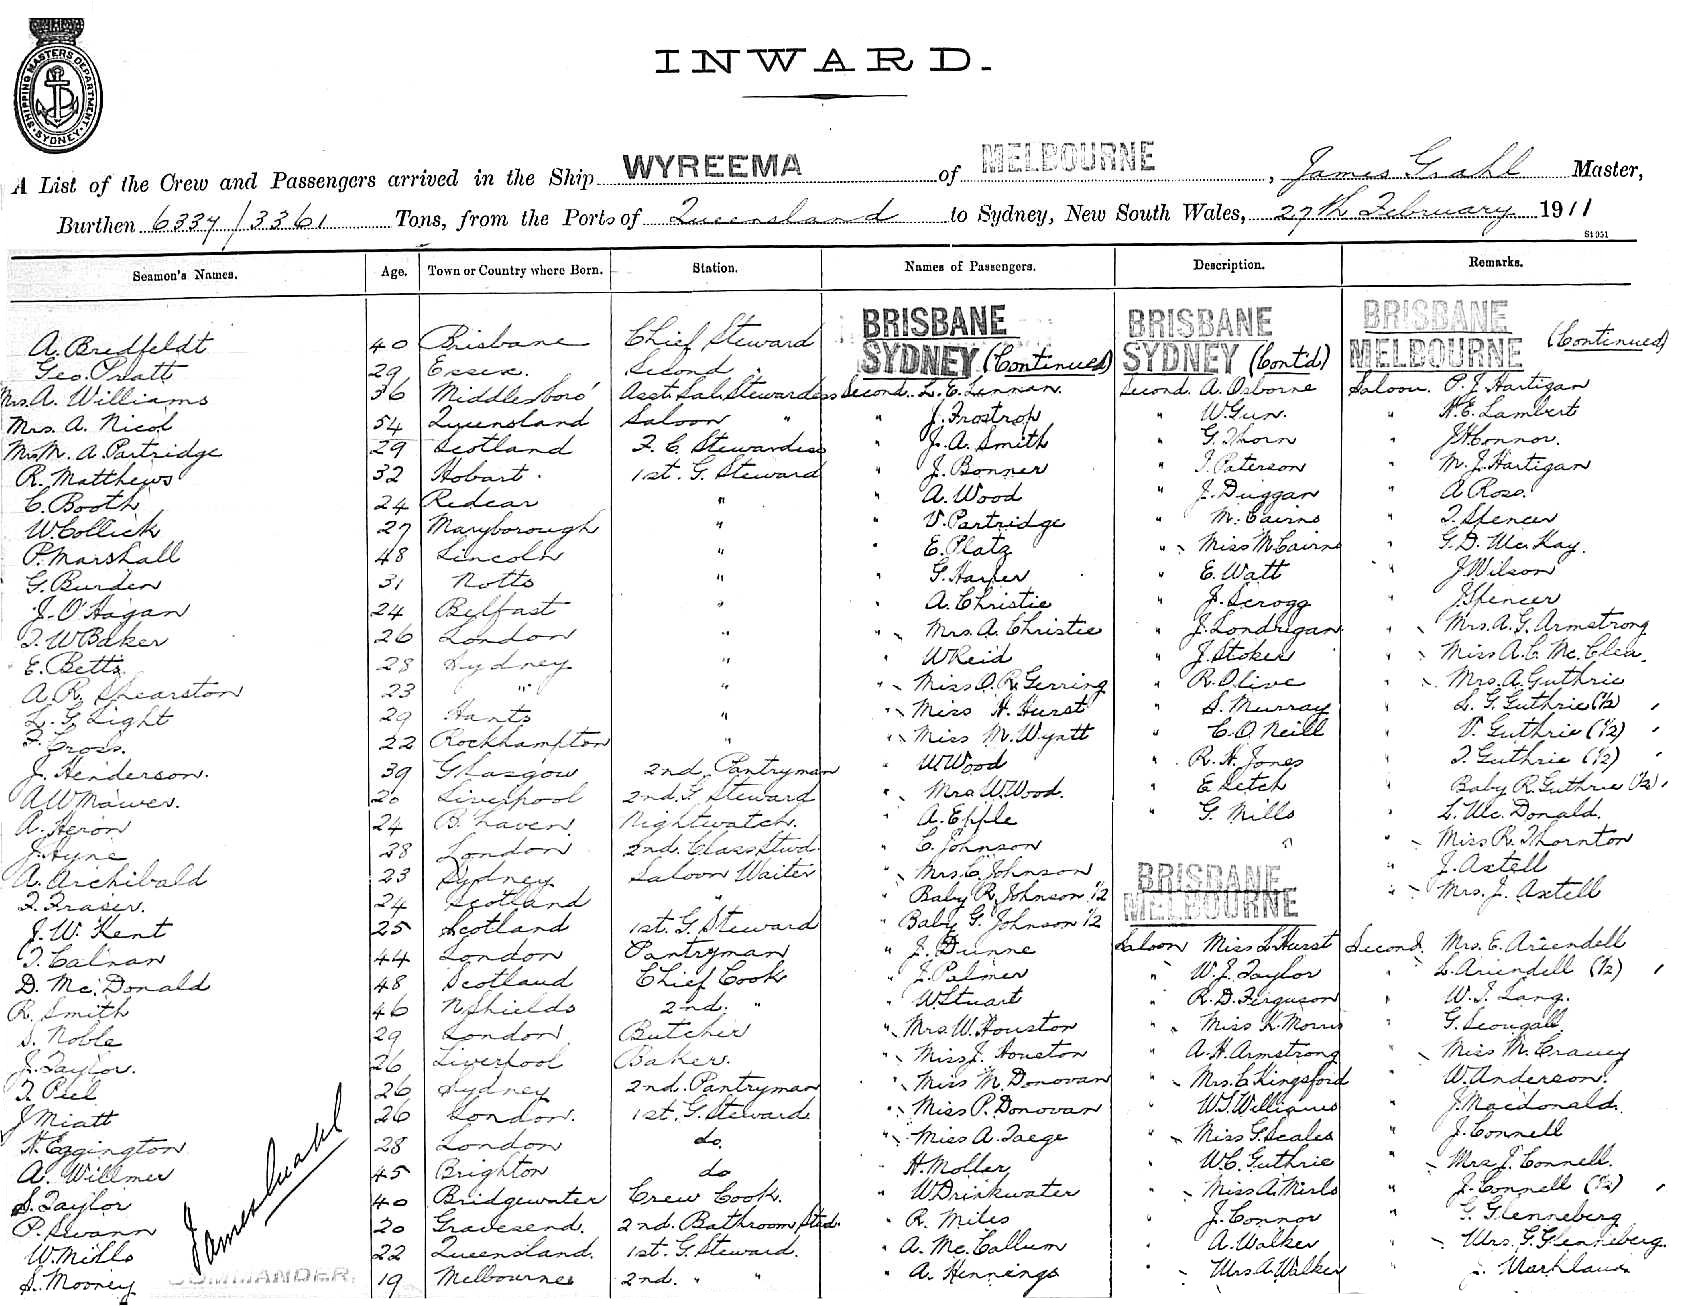 SHIPPING MASTERS DEPARTMENT. SYDNEY
INWARD.
A List of the Crew and Passengers arrived in the Ship WYREEMA of MELBOURNE, James Grahl Master,
Burthen 6337/3361 Tons, from the Ports of Queensland to Sydney, New South Wales, 27th February 1911
St 951
Seamen's Names. Age. Town or Country where Born. Station. Names of Passengers. Description. Remarks.
BRISBANE BRISBANE BRISBANE (Continued)
A. Bredfeldt 40 Brisbane Chief Steward SYDNEY (Continued) SYDNEY (Contd) MELBOURNE
Geo. Pratt 29 Essex. Second "
Mrs. A. Williams 36 Middlesboro' Asst. Sal. Stewardess Second L. E. Lennan. Second A. Osborne Saloon. P. J. Hartigan
Mrs. A. Nicol 54 Queensland Saloon " " J. Frostrop " W. Gun. " H. E. Lambert
Mrs. M. A. Partridge 29 Scotland F. C. Stewardess " J. A. Smith " G. Thorn " J. H. Connor.
R. Matthews 32 Hobart. 1st. G. Steward " J. Bonner " T. Paterson " M. J. Hartigan
C. Booth 24 Redcar " " A. Wood " J. Duggan " A Ross.
W. Collick 27 Maryborough " " V. Partridge " M. Cairns " T. Spencer
P. Marshall 48 Lincoln " " E. Platz " Miss M Cairns " G. D. Mc. Kay.
G. Burden 31 Notts " " G. Harper " E. Watt " J. Wilson
J. O'Hagan 24 Belfast " " A. Christie " J. Scrogg " J. Spencer
T. W Baker 26 London " " Mrs. A. Christie " J. Londrigan " Mrs. A. G. Armstrong
E. Betts 28 Sydney " " W Reid " J. Stoker " Miss A. C. Mc. Clea.
A. R. Shearston 23 " " " Miss O. R. Gerring " R. Olive " Mrs. A. Guthrie
L. G. Light 29 Hants " " Miss H. Hurst " S. Murray " L. G. Guthrie (½)
F. Cross. 22 Rockhampton " " Miss M. Wyatt " C. O. Neill " V. Guthrie (½)
J. Henderson. 39 Glasgow 2nd. Pantryman " W. Wood " R. H. Jones " T. Guthrie (½)
A W Mawer. 20 Liverpool 2nd. G. Steward " Mrs W. Wood. " E Letch " Baby R. Guthrie (½)
A. Heron 24 B. haven. Nightwatch. " A. Epple " G. Mills " L. Mc. Donald.
J. Hyne 38 London 2nd. Class Stwd. " C. Johnson " Miss R. Thornton
A. Archibald 23 Sydney Saloon Waiter " Mrs. C. Johnson BRISBANE " J. Axtell
F. Fraser. 24 Scotland " " Baby R. Johnson ½ MELBOURNE " Mrs. J. Axtell
J. W. Kent 25 Scotland 1st. G. Steward " Baby G. Johnson ½
T. Calnan 44 London Pantryman " J. Dunne Saloon Miss L. Hurst Second Mrs. E. Ariendell
D. Mc. Donald 48 Scotland Chief Cook " J. Palmer " W. J. Taylor " L. Ariendell (½)
R. Smith 46 N. Shields 2nd. " " W. Stuart " R. D. Ferguson " W. J. Lang.
S. Noble 29 London Butcher " Mrs W. Houston " Miss K. Morris " G. Scougall.
J. Taylor. 26 Liverpool Baker. " Miss J. Houston " A. H. Armstrong " Miss M. Cravey
T. Peel 26 Sydney 2nd. Pantryman " Miss M. Donovan " Mrs. C. Kingsford " W. Anderson.
J Miatt 26 London. 1st. G. Steward " Miss P. Donovan " W. J. Williams " J. Macdonald.
H. Eggington 28 London do. " Miss A. Taege " Miss G. Scales " J. Connell
A. Willmer 45 Brighton do " H. Moller " W. C. Guthrie " Mrs J. Connell.
S. Taylor 40 Bridgewater Crew Cook. " W Drinkwater " Miss A. Mirls " J. Connell (½)
P. Swann 20 Gravesend. 2nd. Bathroom Stwd. " R. Miles " J. Connor " G. Glenneberg
W. Mills 22 Queensland. 1st. G. Steward. " A. Mc. Callum " A. Walker " Mrs. G. Glenneberg.
S. Mooney 19 Melbourne 2nd. " " " A. Hennings " Mrs A. Walker J. Markland
James Grahl
COMMANDER.